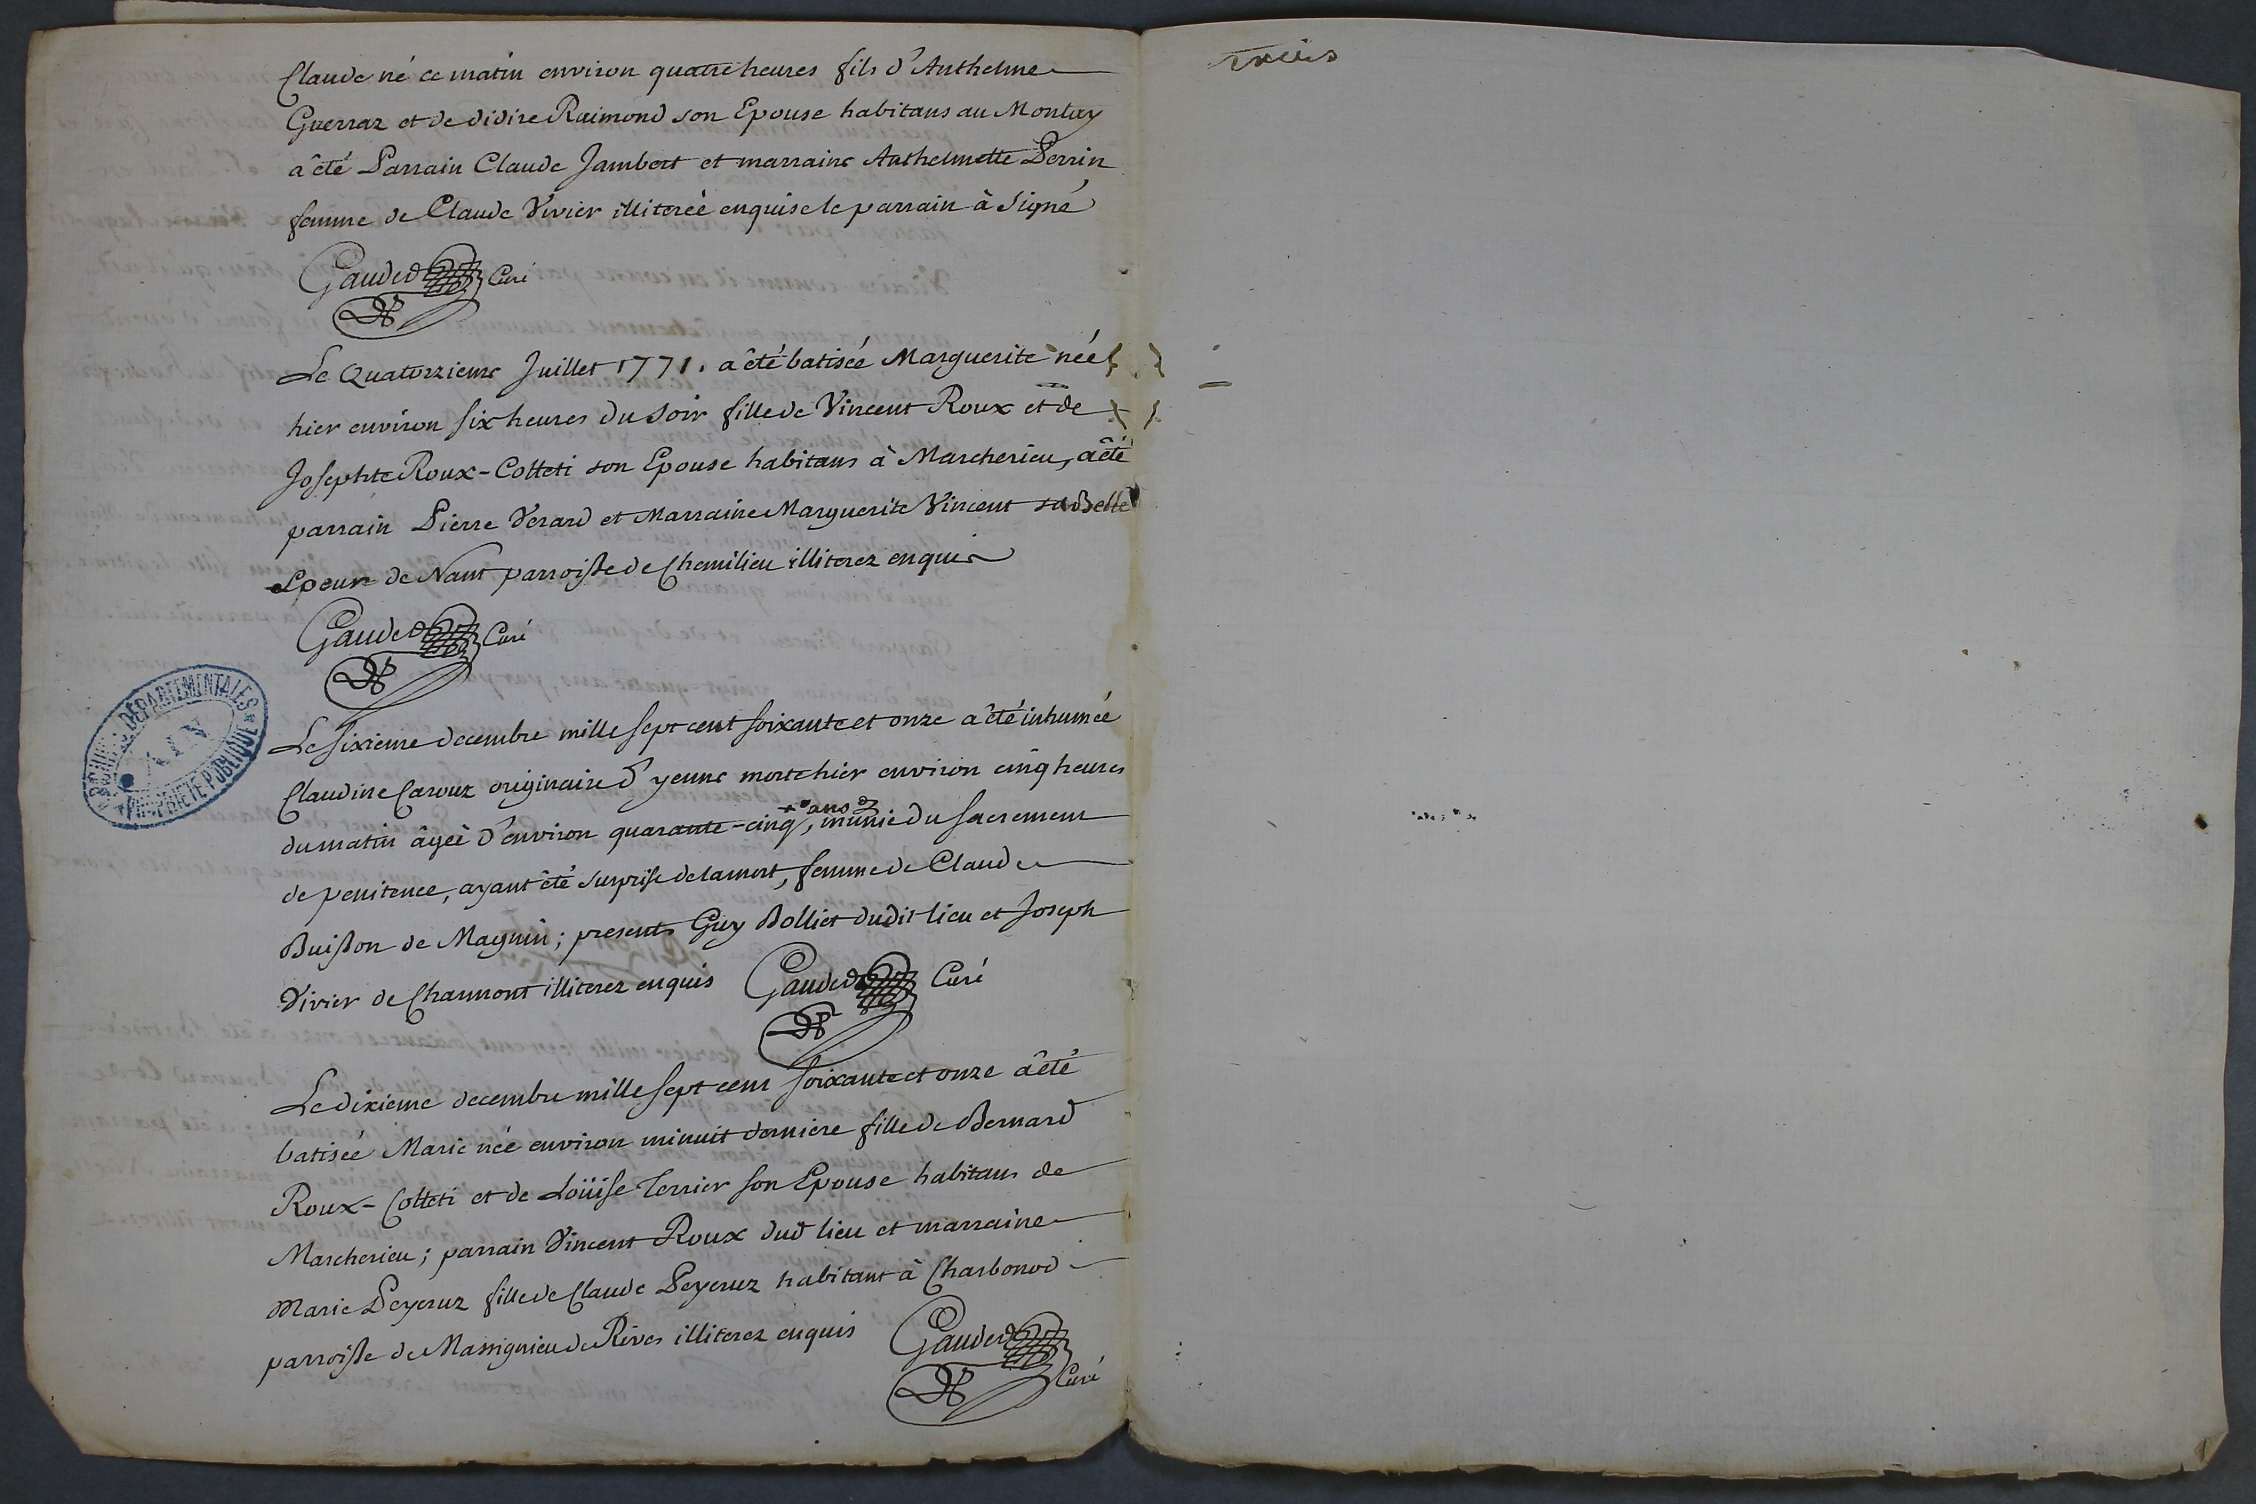 Claude né ce matin environ quatre heures fils d'Anthelme
Guerraz et de didire Raimond son Epouse habitans au Montay
a êté Parrain Claude Jambert et marraine Anthelmette Perrin
femme de Claude Vivier illiterèe enquise le parrain à signé
Gauded Curé
Le Quatorzieme Juillet 1771. a êté batisée Marguerite née
hier environ six heures du soir fille de Vincent Roux et de
Josephte Roux-Colleti son Epouse habitans à Marcherieu, a êté
parrain Pierre Verard et Marraine Marguerite Vincent sa Belle
Epeuse de Nant parroisse de Chemilieu illiterez enquis
Gauded Curé
Le sixieme decembre mille sept cent soixante et onze a êté inhumée
Claudine Carouz originaire d'yenne morte hier environ cinq heures
ans
du matin âgée d'environ quarante-cinq, munie du sacrement
de penitence, ayant êté surprise de la mort, femme de Claude
Buisson de Magnin; presents Guy Bolliet dudit lieu et Joseph
Vivier de Chanmont illiterez enquis Gauded Curé
Le dixieme decembre mille sept cent soixante et onze a êté
batisée Marie née environ minuit derniere fille de Bernard
Roux-Colleti et de Loüise Terrier son Epouse habitans de
Marcherieu; parrain Vincent Roux dud lieu et marraine
Marie Peyeruz fille de Claude Peyeruz habitant à Charbonod
parroisse de Massignieu de Rives illiterez enquis Gauded
Curé
ARCHIVES DÉPARTEMENTALES
AIN
PROPRIÉTÉ PUBLIQUE